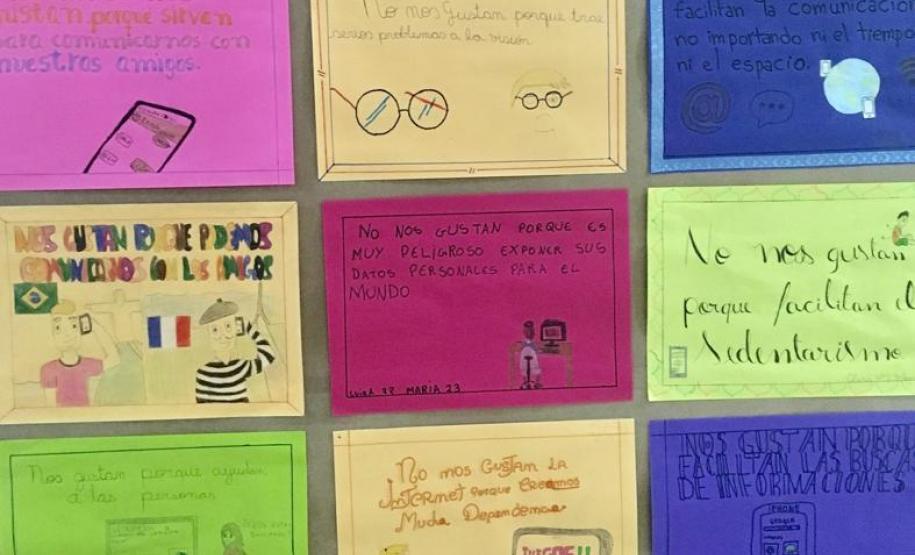 gustan porque sirven
para comunicarnos con
nuestros amigos.
No nos gustan porque trae
serios problemas a la visión
facilitan la comunicación
no importando ni el tiempo
ni el espacio.
@
NOS GUSTAN PORQUE PODEMOS
COMUNICARNOS CON LOS AMIGOS
NO NOS GUSTAN PORQUE ES
MUY PELIGROSO EXPONER SUS
DATOS PERSONALES PARA EL
MUNDO
MARIA 23
No nos gustan
porque facilitan el
Sedentarismo
Nos gustan porque ayudan
a las personas
No nos GusTan LA
InTERneT Porque Creamos
Mucha Dependencia
JUEGOS
NOS GUSTAN PORQUE
FACILITAN LAS BUSCAS
DE INFORMACIONES
IPHONE
GOOGLE